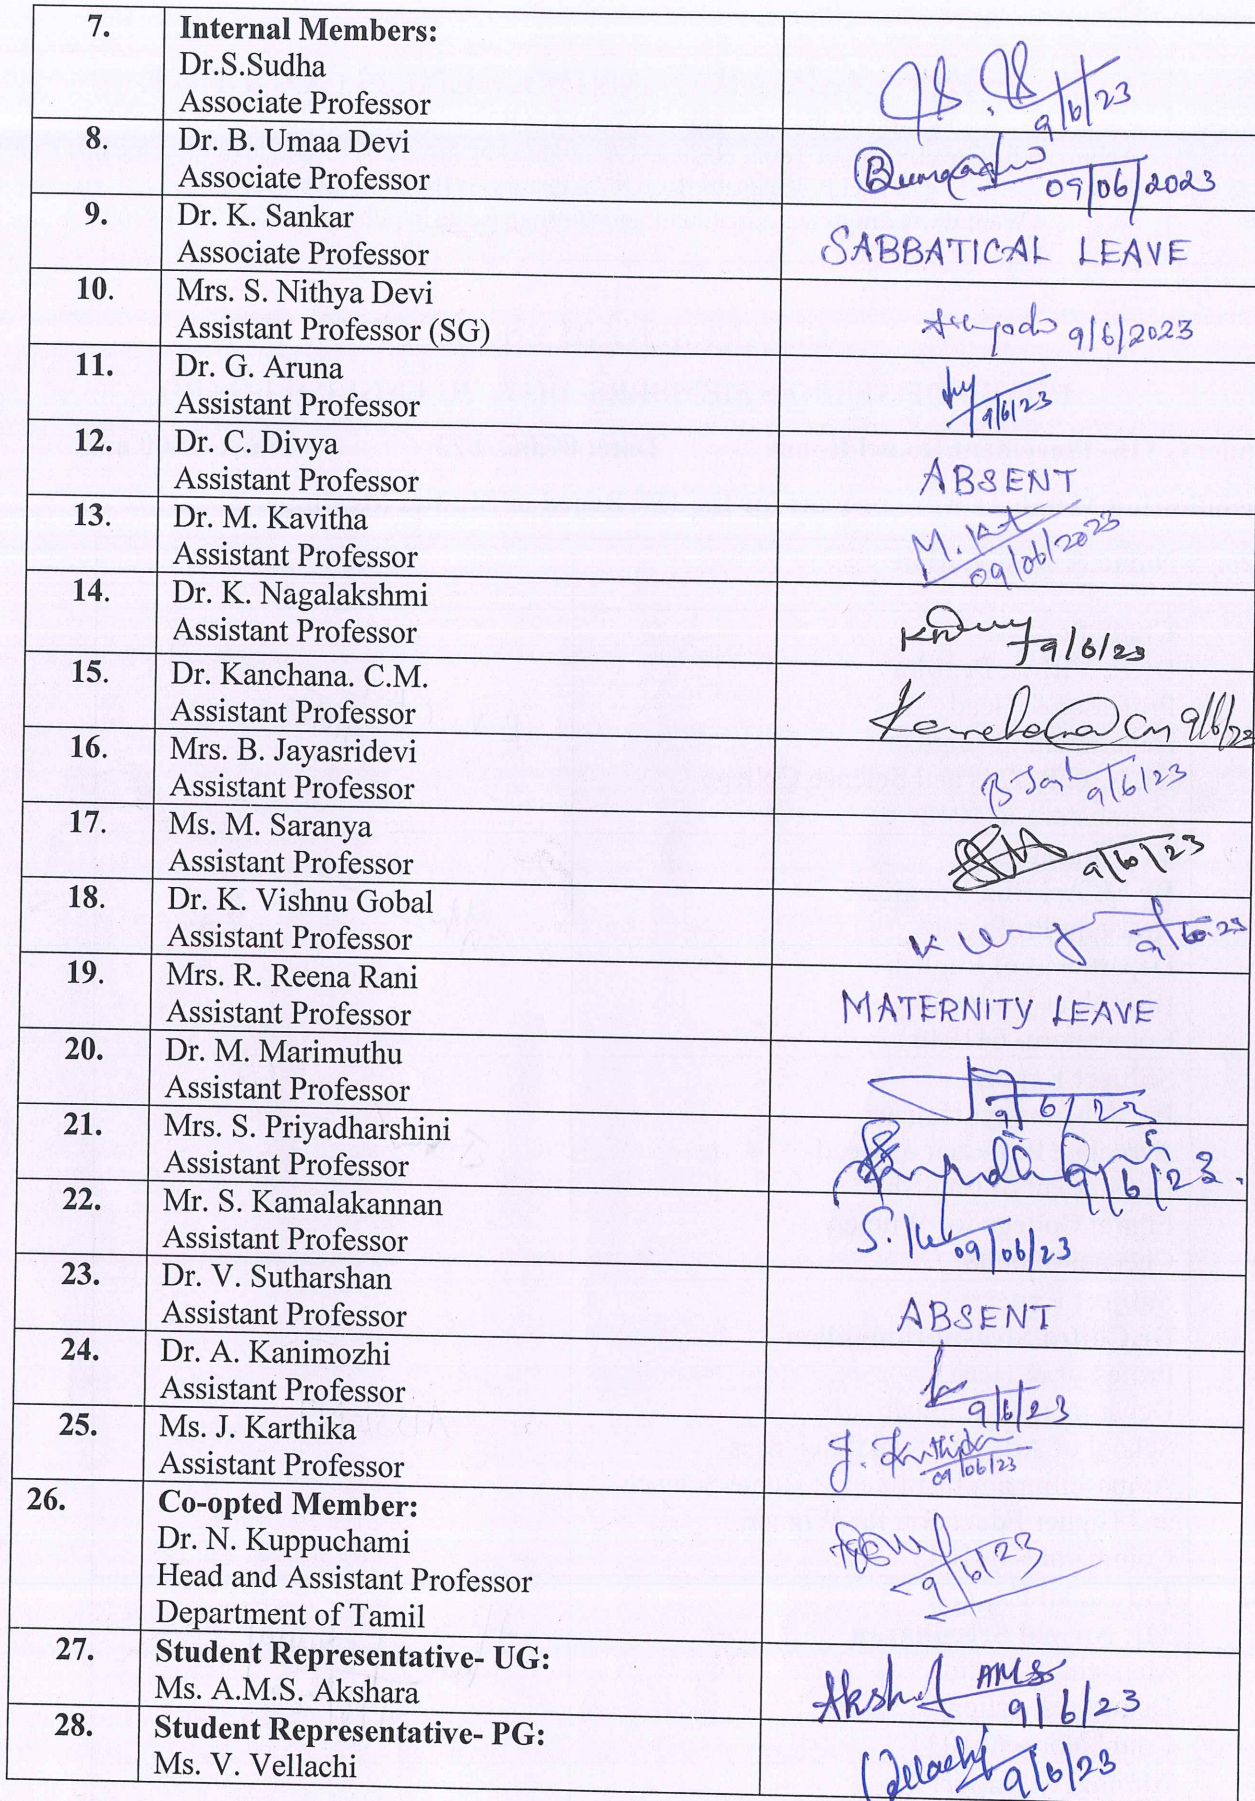 7. Internal Members:
Dr.S.Sudha
Associate Professor
9/6/23
8. Dr. B. Umaa Devi
Associate Professor
09/06/2023
9. Dr. K. Sankar
Associate Professor
SABBATICAL LEAVE
10. Mrs. S. Nithya Devi
Assistant Professor (SG)
9/6/2023
11. Dr. G. Aruna
Assistant Professor
9/6/23
12. Dr. C. Divya
Assistant Professor
ABSENT
13. Dr. M. Kavitha
Assistant Professor
09/06/2023
14. Dr. K. Nagalakshmi
Assistant Professor
9/6/23
15. Dr. Kanchana. C.M.
Assistant Professor
9/6/23
16. Mrs. B. Jayasridevi
Assistant Professor
9/6/23
17. Ms. M. Saranya
Assistant Professor
9/6/23
18. Dr. K. Vishnu Gobal
Assistant Professor
19. Mrs. R. Reena Rani
Assistant Professor
MATERNITY LEAVE
20. Dr. M. Marimuthu
Assistant Professor
9/6/23
21. Mrs. S. Priyadharshini
Assistant Professor
9/6/23.
22. Mr. S. Kamalakannan
Assistant Professor
09/06/23
23. Dr. V. Sutharshan
Assistant Professor
ABSENT
24. Dr. A. Kanimozhi
Assistant Professor
9/6/23
25. Ms. J. Karthika
Assistant Professor
J. Karthika
09/06/23
26. Co-opted Member:
Dr. N. Kuppuchami
Head and Assistant Professor
Department of Tamil
9/6/23
27. Student Representative- UG:
Ms. A.M.S. Akshara
AMS
9/6/23
28. Student Representative- PG:
Ms. V. Vellachi
9/6/23